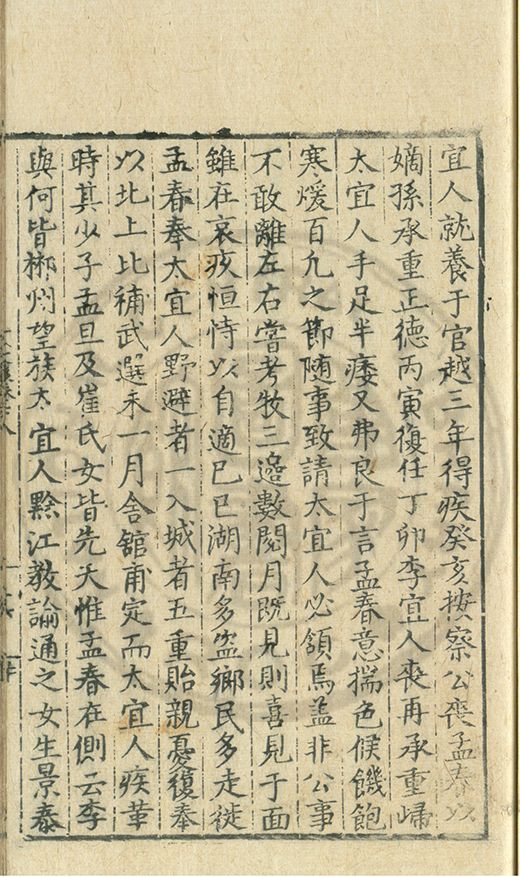 宜人就養于官越三年得疾癸亥按察公喪孟春以
嫡孫承重正德丙寅復任丁卯李宜人喪再承重歸
太宜人手足半痿又弗良于言孟春意揣色候饑飽
寒煖百凢之節随事致請太宜人必頷焉盖非公事
不敢離左右嘗考牧三邉數閱月既見則喜見于面
雖在哀疚恒恃以自適己巳湖南多盗鄉民多走徙
孟春奉太宜人野避者一入城者五重貽親憂復奉
以北上比補武選未一月舍舘甫定而太宜人疾革
時其少子孟旦及崔氏女皆先夭惟孟春在側云李
與何皆郴州望族太宜人黔江教諭通之女生景泰